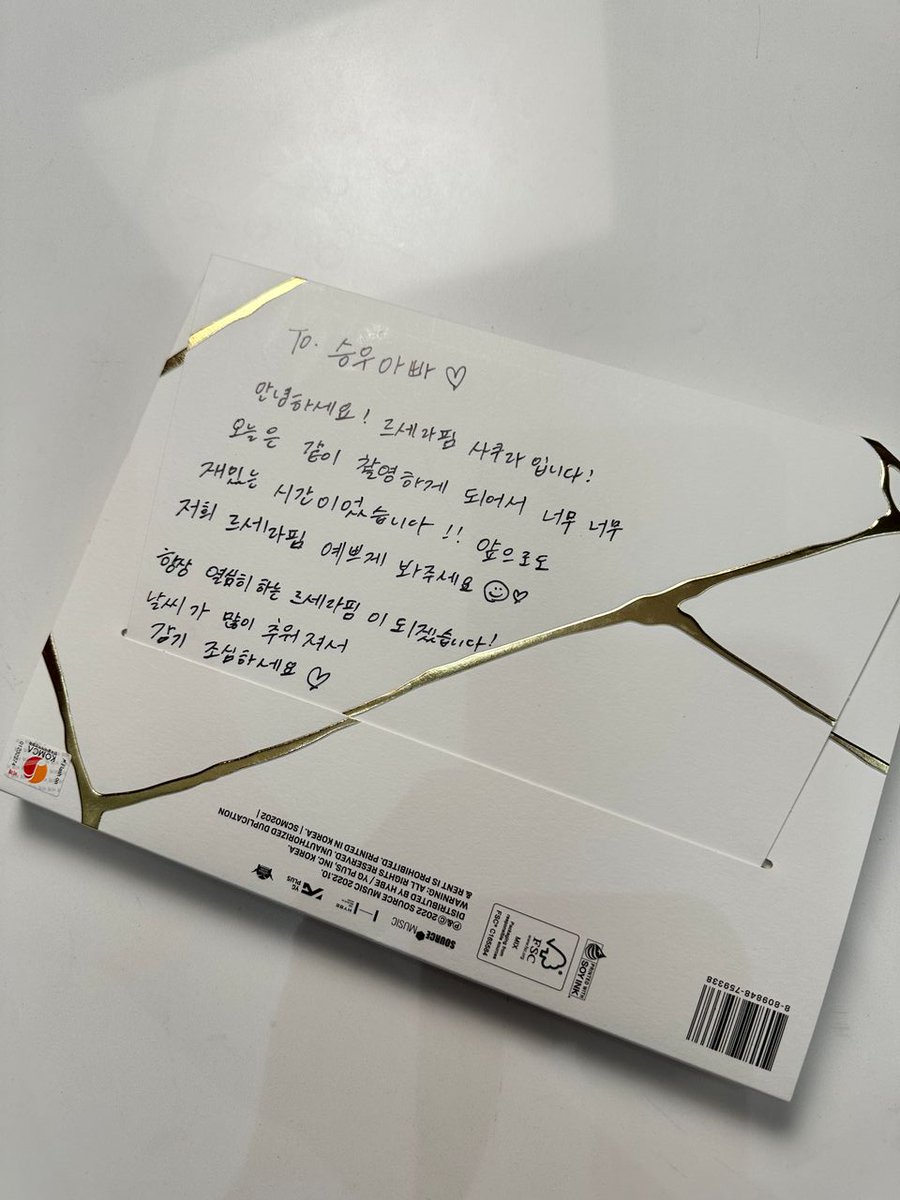 To. 승우아빠♡
안녕하세요! 르세라핌 사쿠라입니다!
오늘은 같이 촬영하게 되어서 너무 너무
재밌는 시간이었습니다!! 앞으로도
저희 르세라핌 예쁘게 봐주세요☺♡
항상 열심히 하는 르세라핌이 되겠습니다!
날씨가 많이 추워져서
감기 조심하세요♡
KOMCA
8-809848-759338
PRINTED WITH
SOY INK
FSC
www.fsc.org
MIX
Packaging from
responsible sources
FSC® C165584
SOURCE MUSIC
HYBE
YG
PLUS
℗&© 2022 SOURCE MUSIC 2022.10.
DISTRIBUTED BY HYBE / YG PLUS, INC. KOREA.
WARNING: ALL RIGHTS RESERVED. UNAUTHORIZED DUPLICATION
& RENT IS PROHIBITED. PRINTED IN KOREA. | SCM0202 |